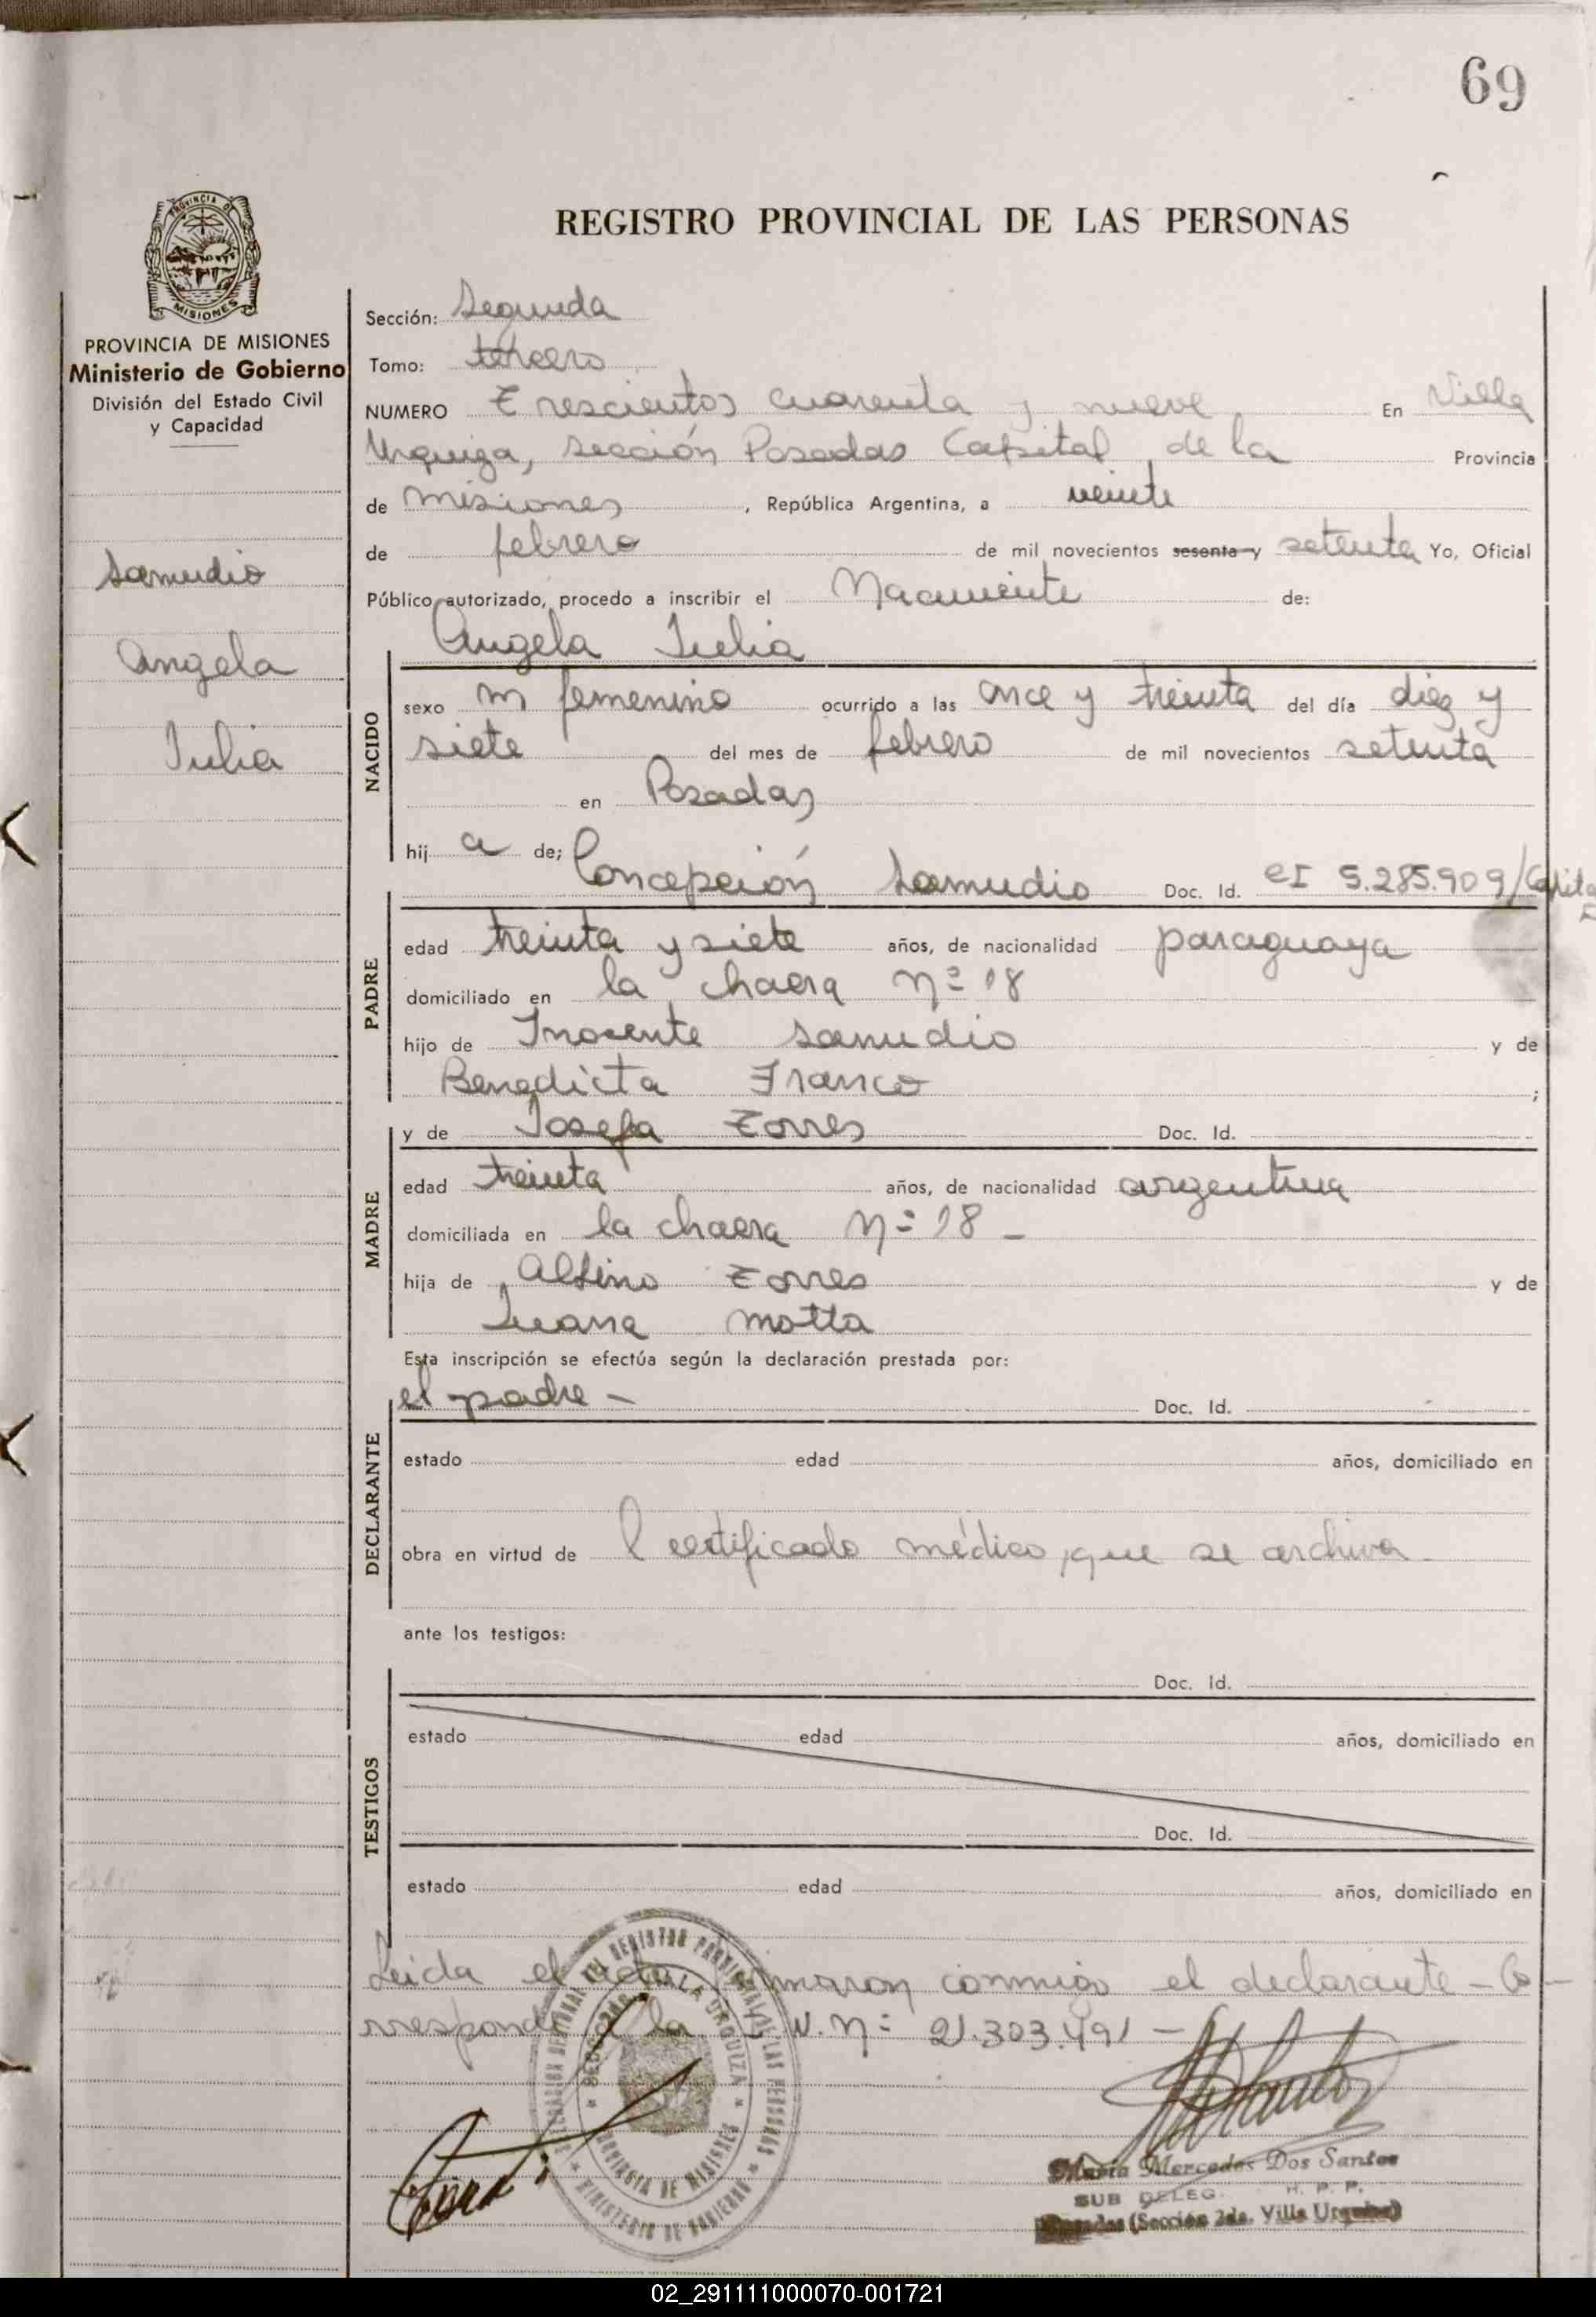 69
REGISTRO PROVINCIAL DE LAS PERSONAS
PROVINCIA DE
MISIONES
PROVINCIA DE MISIONES
Ministerio de Gobierno
División del Estado Civil
y Capacidad
Samudio
Angela
Julia
Sección: Segunda
Tomo: tercero
NUMERO Trescientos cuarenta y nueve En Villa
Urquiza, sección Posadas Capital, de la Provincia
de Misiones, República Argentina, a veinte
de febrero de mil novecientos sesenta y setenta Yo, Oficial
Público autorizado, procedo a inscribir el Nacimiento de:
Angela Julia
NACIDO
sexo m femenino ocurrido a las once y treinta del día diez y
siete del mes de febrero de mil novecientos setenta
en Posadas
hij a de;
Concepción Samudio Doc. Id. CI 5.285.909/Capital
PADRE
edad treinta y siete años, de nacionalidad paraguaya
domiciliado en la chacra nº 18
hijo de Inocente Samudio y de
Benedicta Franco ;
y de Josefa Torres Doc. Id.
MADRE
edad treinta años, de nacionalidad argentina
domiciliada en la chacra Nº 18 -
hija de Albino Torres y de
Juana Motta
Esta inscripción se efectúa según la declaración prestada por:
el padre - Doc. Id.
DECLARANTE
estado edad años, domiciliado en
obra en virtud de l certificado médico, que se archiva -
ante los testigos:
Doc. Id.
TESTIGOS
estado edad años, domiciliado en
Doc. Id.
estado edad años, domiciliado en
Leida el acta firmaron conmigo el declarante - Co-
rresponde a la N. Nº 21.303.491 -
VILLA URQUIZA
PROVINCIA DE MISIONES
MINISTERIO DE GOBIERNO
María Mercedes Dos Santos
SUB DELEG. R. P. P.
Posadas (Sección 2da. Villa Urquiza)
02_291111000070-001721